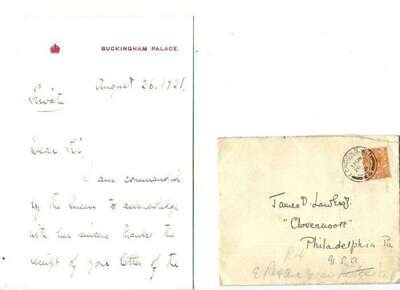 BUCKINGHAM PALACE.
August 26. 1921.
Private
Dear Sir,
I am commanded
by the Queen to acknowledge
with her sincere thanks the
receipt of your letter of the
James D. Law Esq.
"Clovernook"
Philadelphia Pa
U.S.A